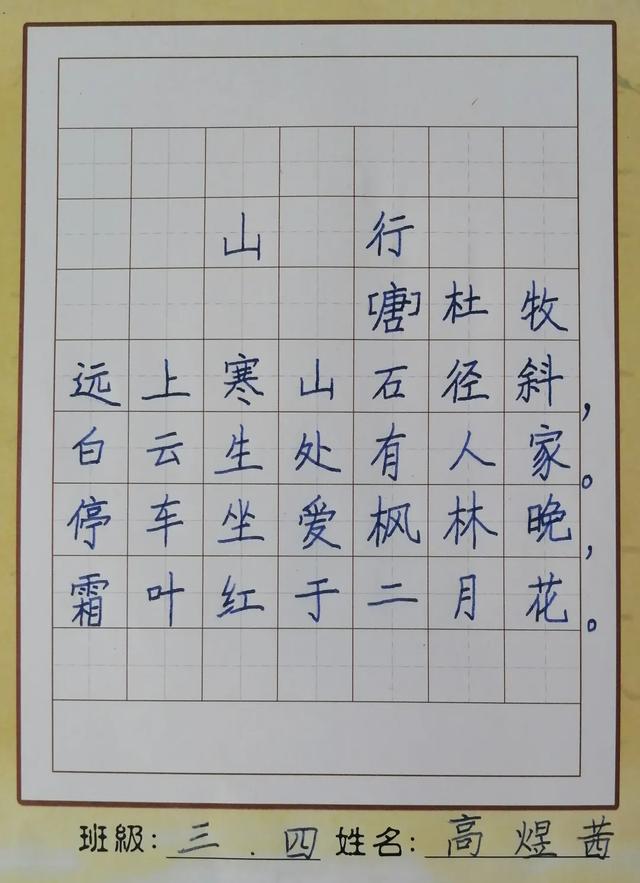 山行
[唐]杜牧
远上寒山石径斜，
白云生处有人家。
停车坐爱枫林晚，
霜叶红于二月花。
班級：三.四 姓名：高煜茜